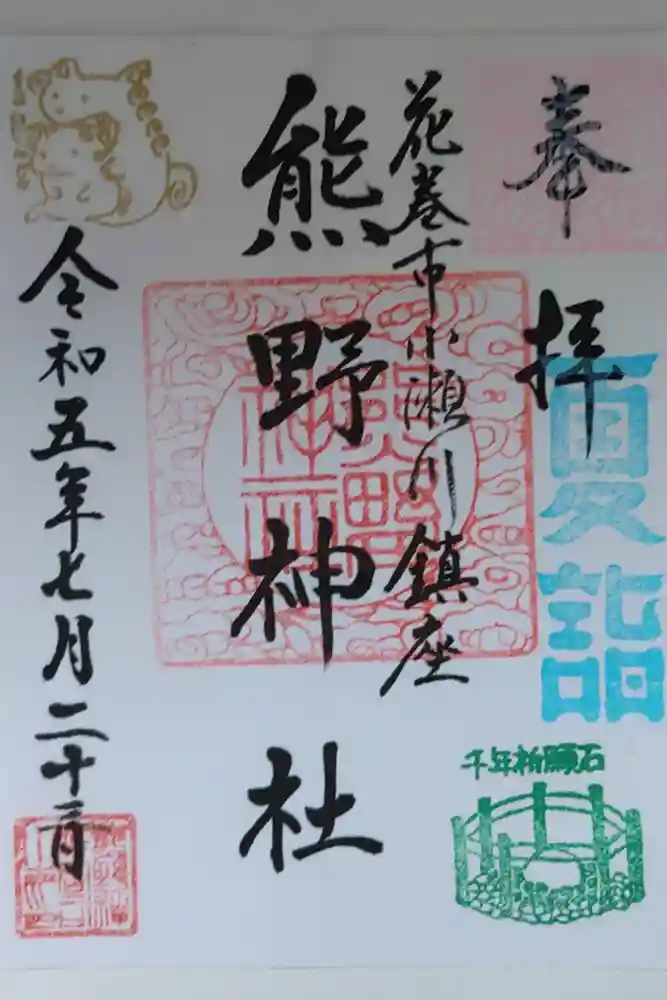 奉拝
夏詣
千年祈願石
花巻市小瀬川鎮座
熊野神社
熊野神社
令和五年七月二十二日